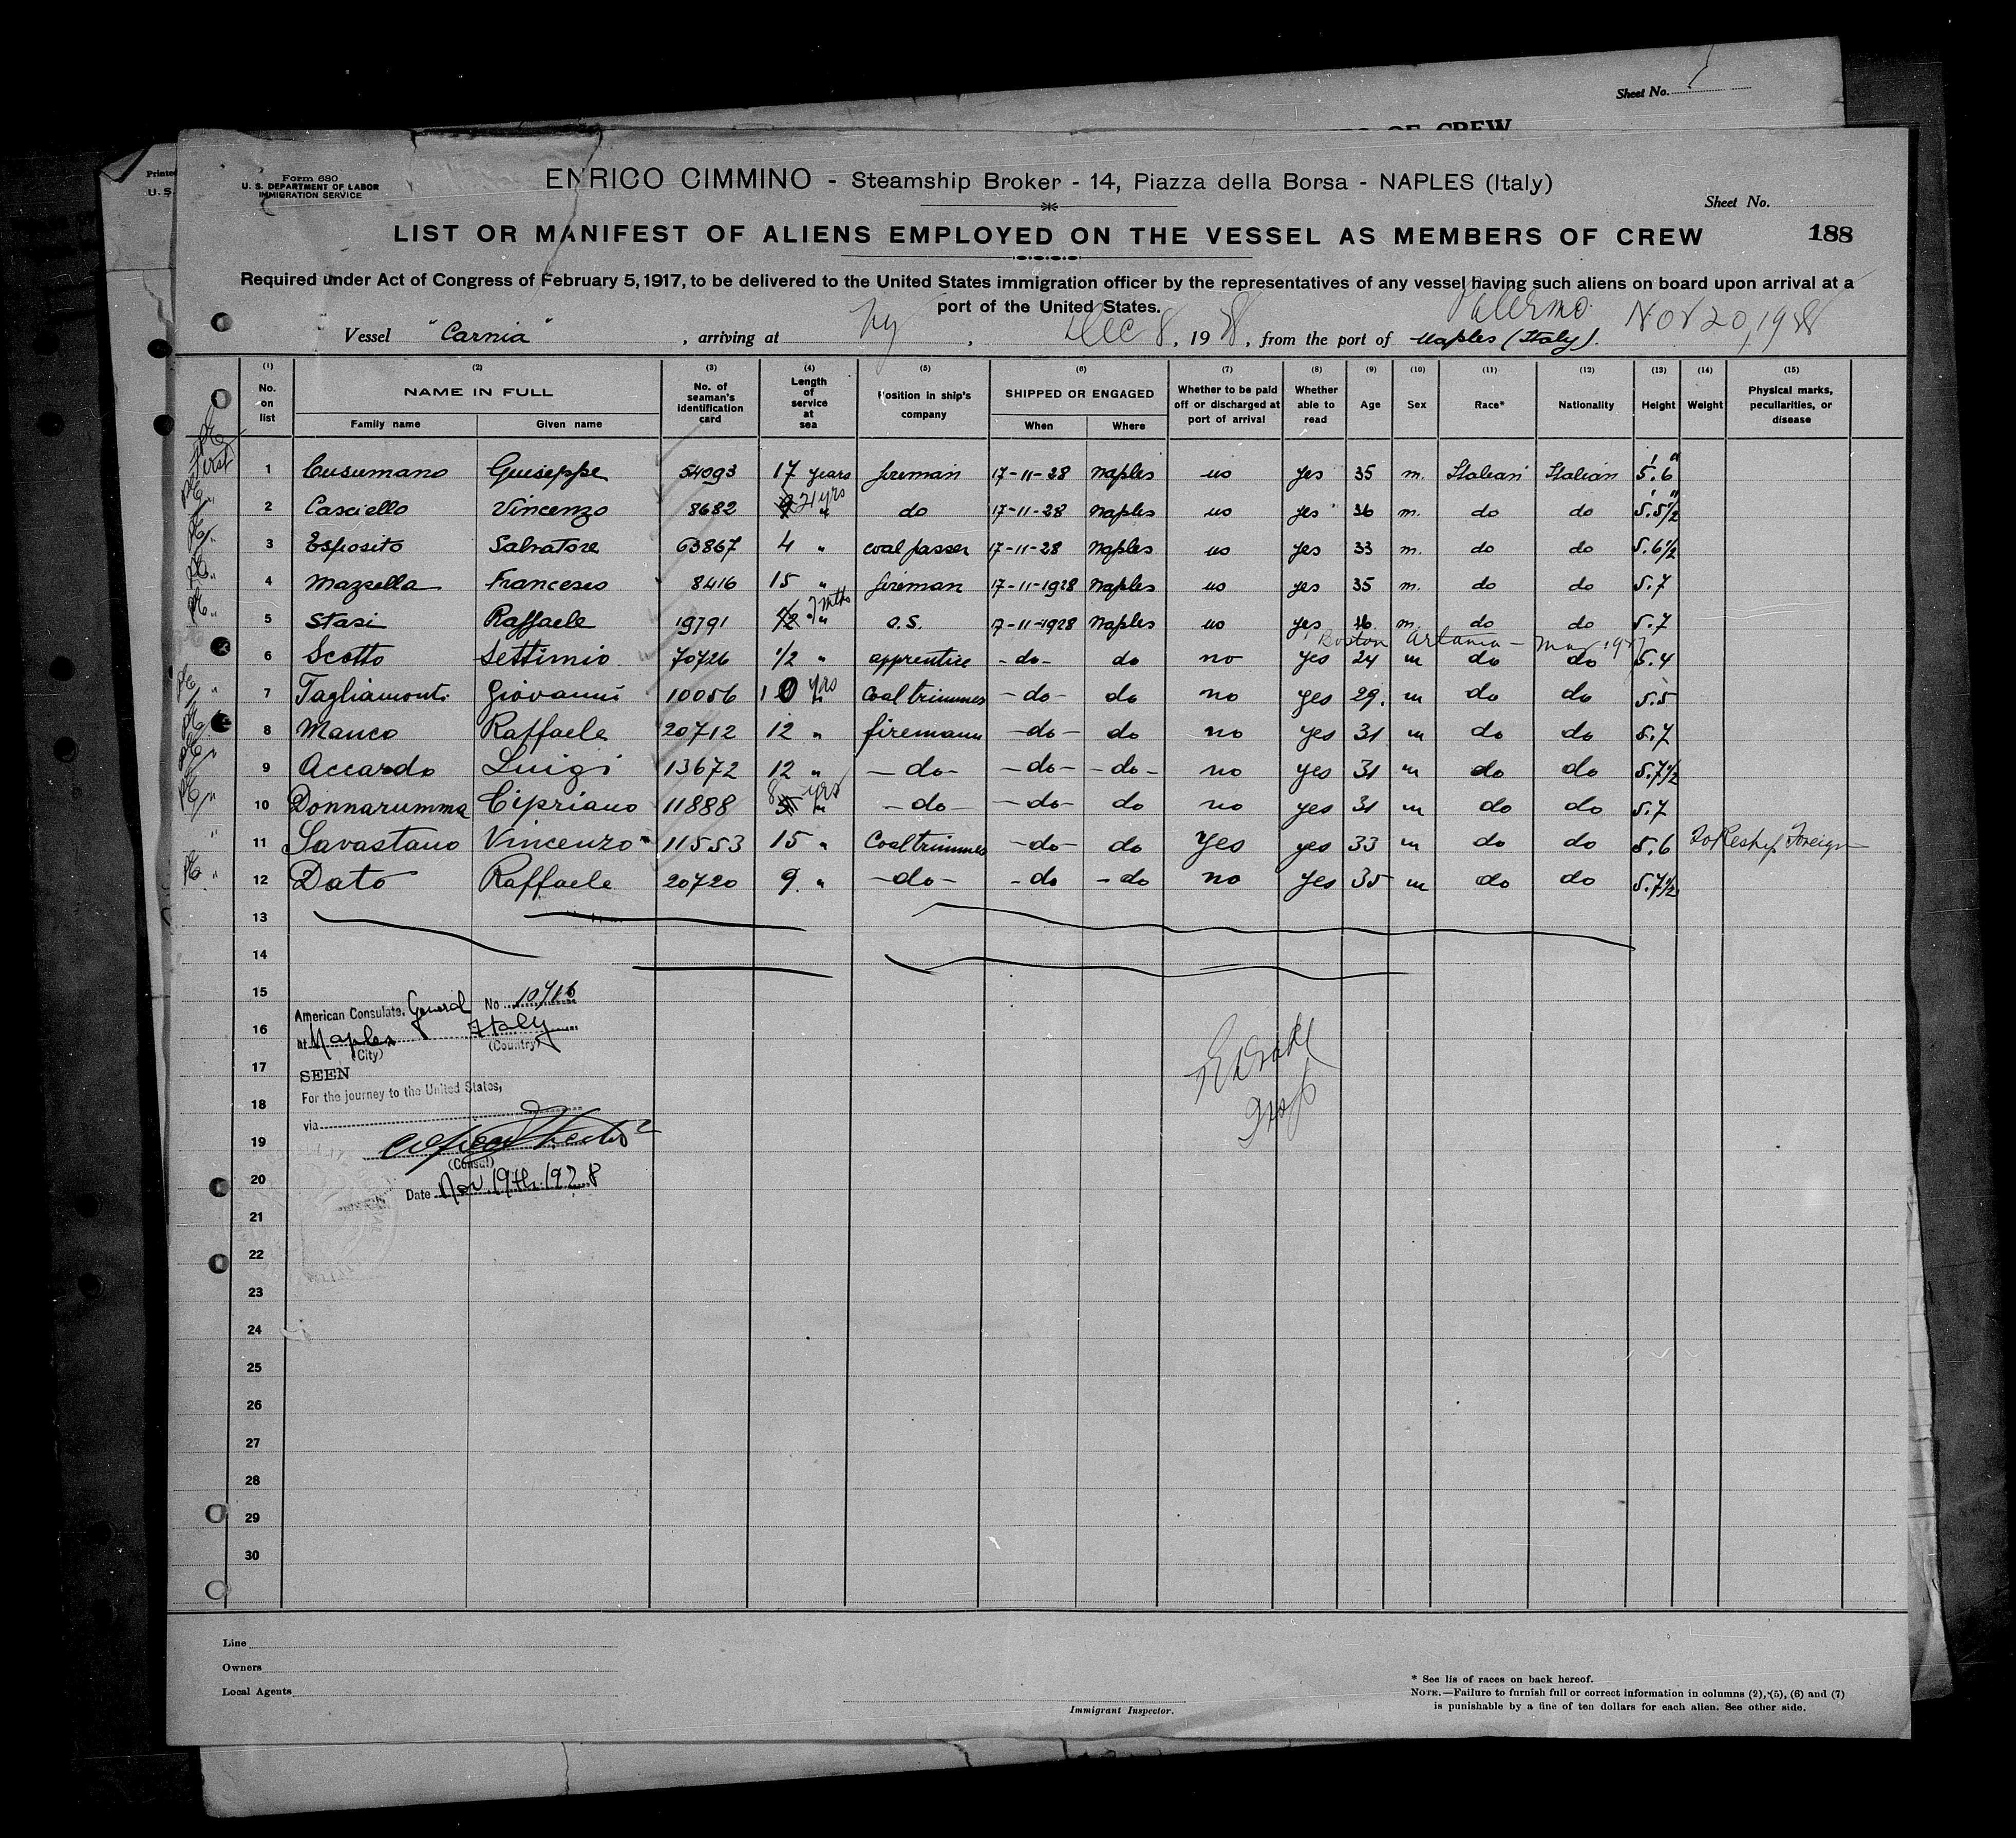 Sheet No.
OF CREW
Printed
U. S.
Form 680
U. S. DEPARTMENT OF LABOR
IMMIGRATION SERVICE
ENRICO CIMMINO - Steamship Broker - 14, Piazza della Borsa - NAPLES (Italy)
Sheet No.
LIST OR MANIFEST OF ALIENS EMPLOYED ON THE VESSEL AS MEMBERS OF CREW 188
Required under Act of Congress of February 5, 1917, to be delivered to the United States immigration officer by the representatives of any vessel having such aliens on board upon arrival at a
port of the United States.
Palermo Nov 20, 1928
Vessel "Carnia", arriving at Ny, Dec 8, 1928, from the port of Naples (Italy).
(1) (2) (3) (4) (5) (6) (7) (8) (9) (10) (11) (12) (13) (14) (15)
No. on list NAME IN FULL No. of seaman's identification card Length of service at sea Position in ship's company SHIPPED OR ENGAGED Whether to be paid off or discharged at port of arrival Whether able to read Age Sex Race* Nationality Height Weight Physical marks, peculiarities, or disease
Family name Given name When Where
First
1 Cusumano Guiseppe 54093 17 years fireman 17-11-28 Naples no yes 35 m. Italian Italian 5' 6"
2 Casciello Vincenzo 8682 21 yrs " do 17-11-28 Naples no yes 36 m. do do 5' 5 1/2"
3 Esposito Salvatore 63867 4 " coal passer 17-11-28 Naples no yes 33 m. do do 5.6 1/2
4 Mazzella Francesco 8416 15 " fireman 17-11-1928 Naples no yes 35 m. do do 5.7
5 Stasi Raffaele 19791 7 mths " o.s. 17-11-1928 Naples no yes 16 m. do do 5.7
Boston Artania - Mar 1927
6 Scotto Settimio 70726 1/2 " apprentice -do- do no yes 24 m do do 5.4
7 Tagliamonti Giovanni 10056 10 yrs " Coaltrimmer -do- do no yes 29. m do do 5.5
8 Manco Raffaele 20712 12 " firemann -do- do no yes 31 m do do 5.7
9 Accardo Luigi 13672 12 " -do- -do- -do- no yes 31 m do do 5.7 1/2
10 Donnarumma Cipriano 11888 8 yrs " -do- -do- do no yes 31 m do do 5.7
11 Savastano Vincenzo 11553 15 " Coaltrimmer -do- do Yes yes 33 m do do 5.6 To Reship Foreign
12 Dato Raffaele 20720 9 " -do- -do -do no yes 35 m do do 5.7 1/2
13
14
15
American Consulate General No. 10416
16
at Naples Italy
(City) (Country)
17
SEEN
For the journey to the United States,
18
via
19
(Consul)
20
Date Nov 19th 1928
Insp
21
22
23
24
25
26
27
28
29
30
Line
Owners
Local Agents
Immigrant Inspector.
* See lis of races on back hereof.
NOTE.—Failure to furnish full or correct information in columns (2), (5), (6) and (7)
is punishable by a fine of ten dollars for each alien. See other side.